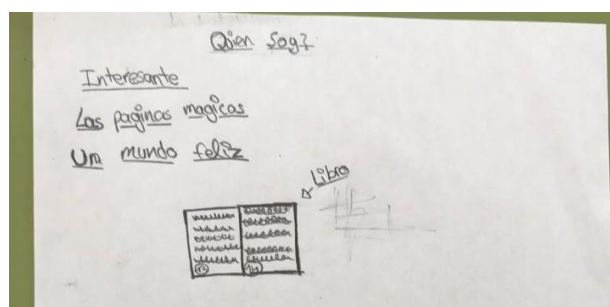 Qien Soy?
Interesante
Las paginas magicas
Un mundo feliz
Libro
13
14